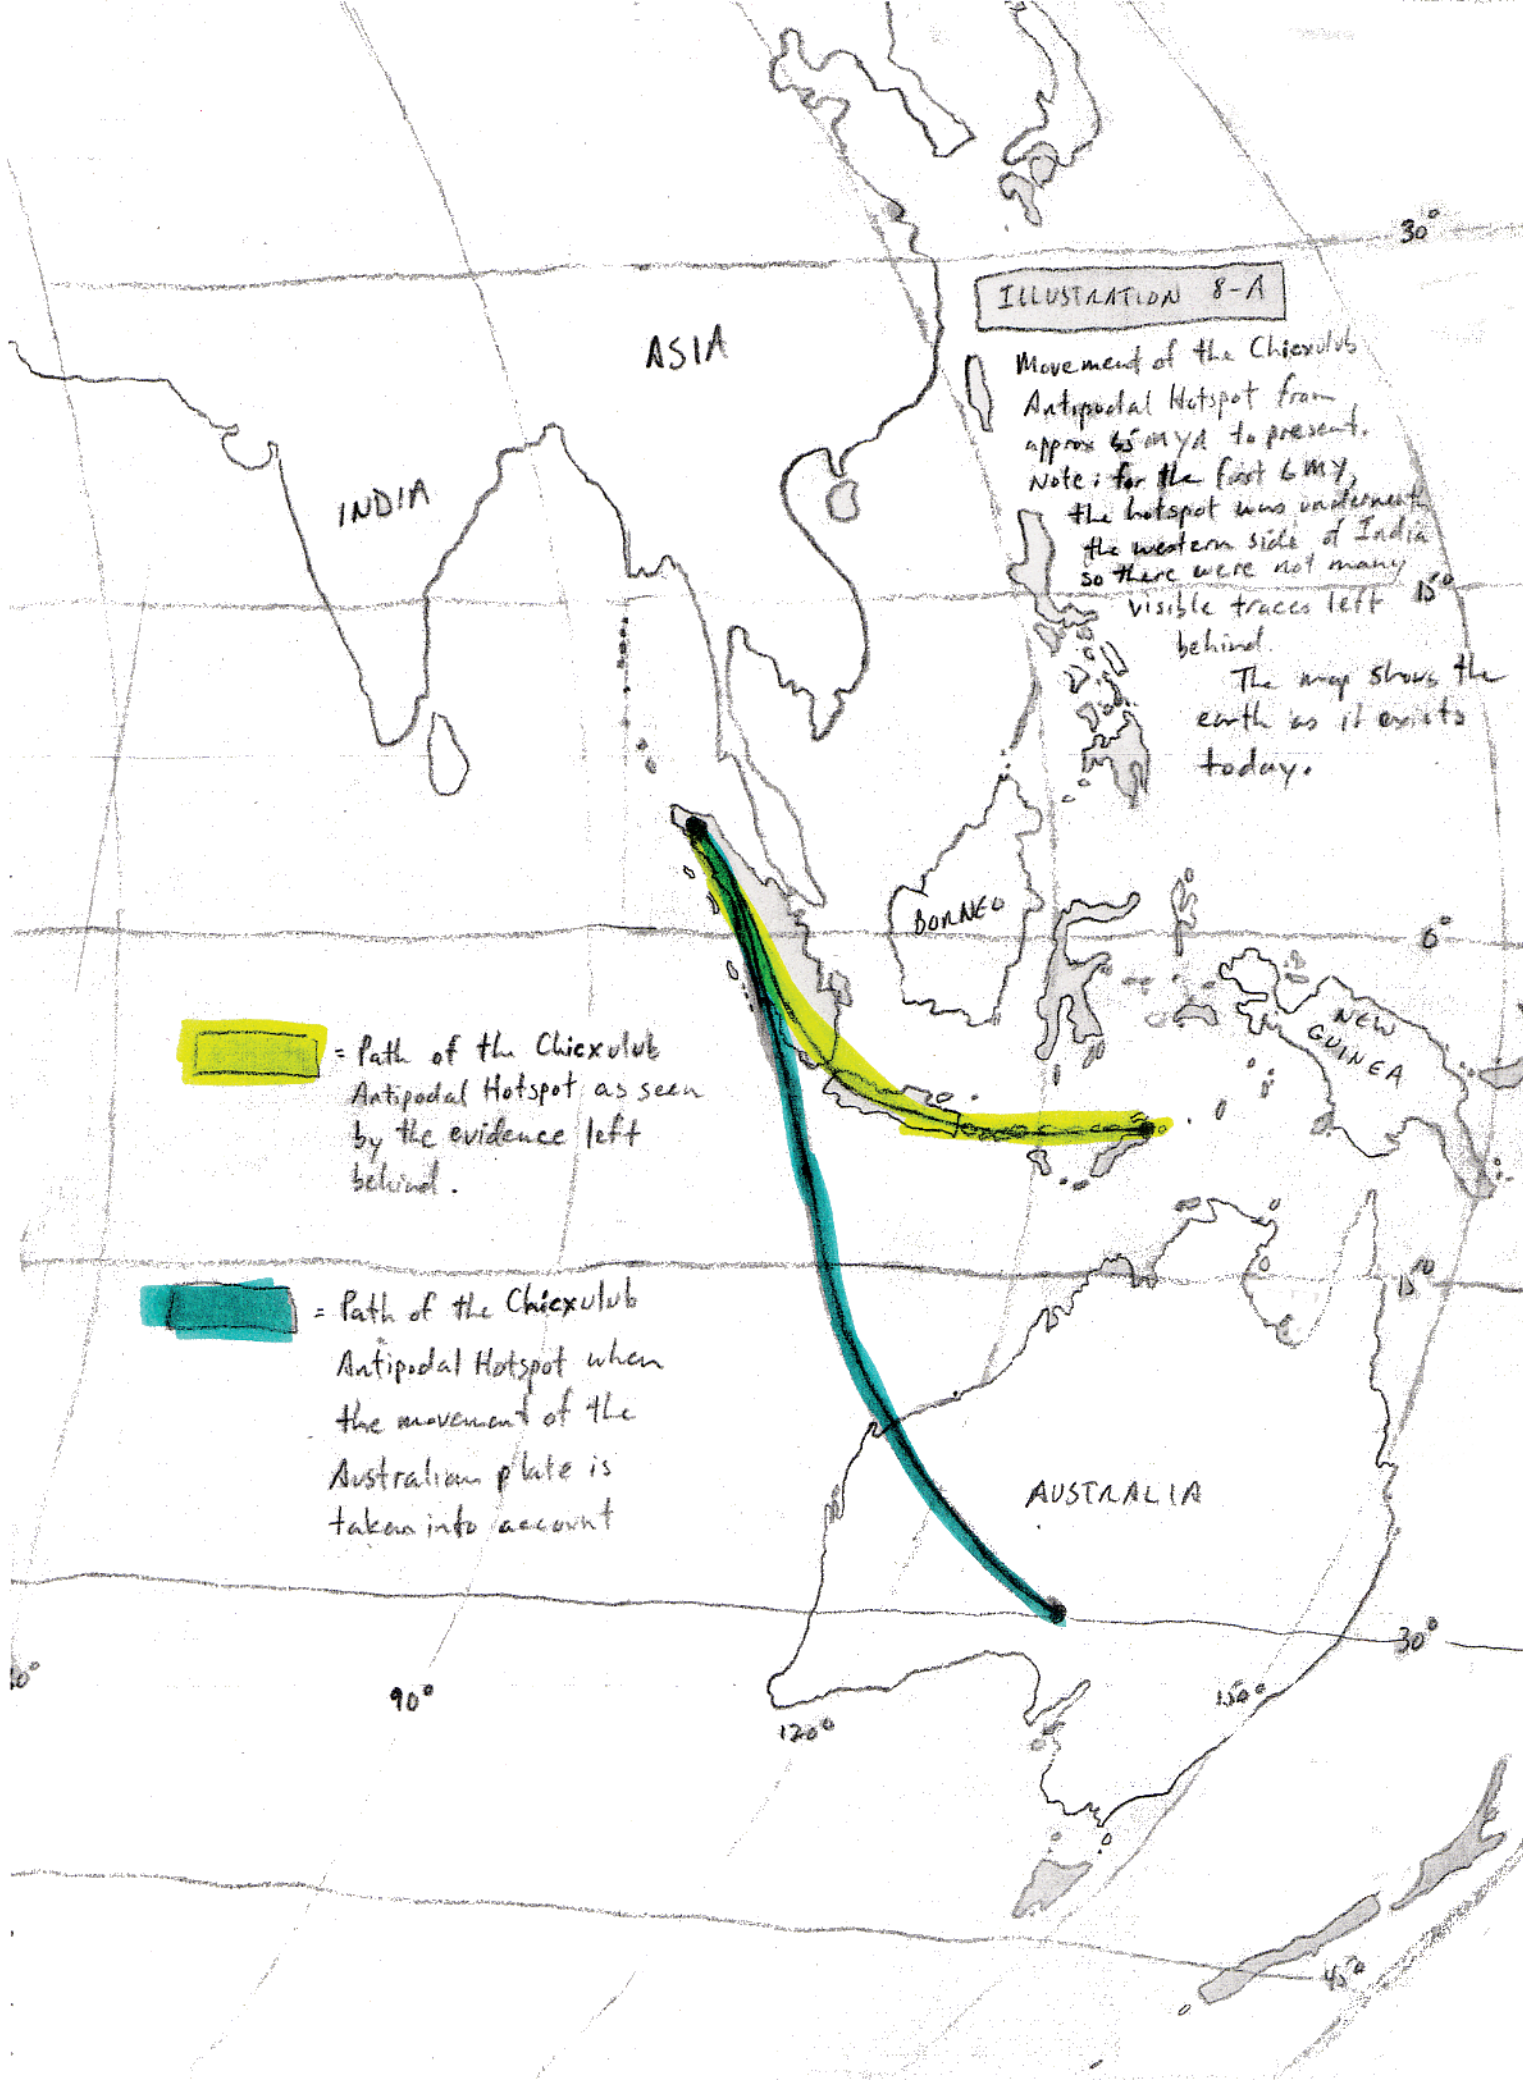 30°
ILLUSTRATION 8-A
Movement of the Chicxulub
Antipodal Hotspot from
approx 65 MYA to present.
Note: for the first 6 MY,
the hotspot was underneath
the western side of India
so there were not many
visible traces left
behind.
The map shows the
earth as it exists
today.
ASIA
INDIA
15°
BORNEO
0°
NEW
GUINEA
= Path of the Chicxulub
Antipodal Hotspot as seen
by the evidence left
behind.
15°
= Path of the Chicxulub
Antipodal Hotspot when
the movement of the
Australian plate is
taken into account
AUSTRALIA
30°
90°
120°
150°
45°